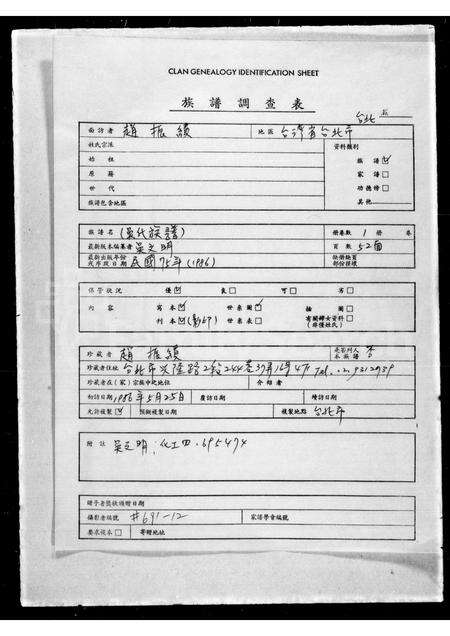 CLAN GENEALOGY IDENTIFICATION SHEET
族譜調查表
台北
面訪者 趙振績 地區 台灣省台北市
姓氏宗派 資料類別
始祖 族譜☑
原籍 家譜□
世代 功德榜□
族譜包含地區 其他
族譜名 (吳氏族譜) 冊卷數 1 冊 卷
最新版本編纂者 吳文明 頁數 52面
最新出版年份或序跋日期 民國75年(1986) 缺冊缺頁部份損壞
保管狀況 優☑ 良□ 可□ 劣□
內容 寫本☑ 世系圖☑ 插圖□
刊本☑(影印) 世系表□ 有關婦女資料□(非僅姓氏)
珍藏者 趙振績 是否列入本族譜 否
珍藏者住址 台北市 2段244巷37弄16號4F Tel.
珍藏者在(家)宗族中之地位 介紹者
初訪日期 1986年5月25日 覆訪日期 續訪日期
允許複製☑ 預擬複製日期 複製地點 台北市
附註 吳文明:化工四.695474
贈予者獎狀頒贈日期
攝影者編號 #691-12 家譜學會編號
要求複本□ 寄贈地址